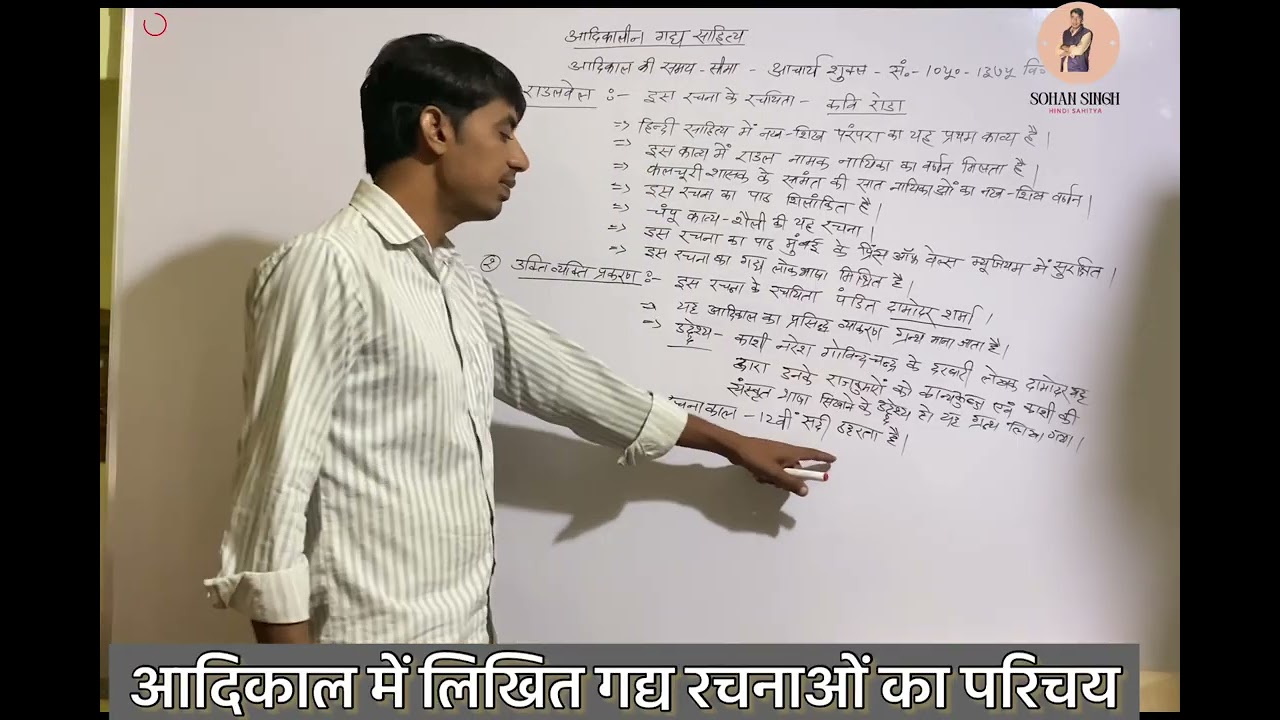 आदिकालीन गद्य साहित्य
आदिकाल की समय-सीमा - आचार्य शुक्ल - सं०- 1050- 1375 वि०
SOHAN SINGH
HINDI SAHITYA
राउलवेल :- इस रचना के रचयिता - कवि रोडा
=> हिन्दी साहित्य में नख-शिख परंपरा का यह प्रथम काव्य है।
=> इस काव्य में राउल नामक नायिका का वर्णन मिलता है।
=> कालचूरी शासक के सामंत की सात नायिकाओं का नख-शिख वर्णन।
=> इस रचना का पाठ शिलांकित है।
=> चंपू काव्य-शैली की यह रचना।
=> इस रचना का पाठ मुंबई के प्रिंस ऑफ वेल्स म्यूजियम में सुरक्षित।
=> इस रचना का गद्य लोकभाषा मिश्रित है।
② उक्ति व्यक्ति प्रकरण :- इस रचना के रचयिता पंडित दामोदर शर्मा।
=> यह आदिकाल का प्रसिद्ध व्याकरण ग्रन्थ माना जाता है।
=> उद्देश्य - काशी नरेश गोविन्दचन्द्र के दरबारी लेखक दामोदर भट्ट
द्वारा इनके राजकुमारों को कान्यकुब्ज एवं काशी की
संस्कृत भाषा सिखाने के उद्देश्य से यह ग्रन्थ लिखा गया।
रचनाकाल - 12वीं सदी ठहरता है।
आदिकाल में लिखित गद्य रचनाओं का परिचय